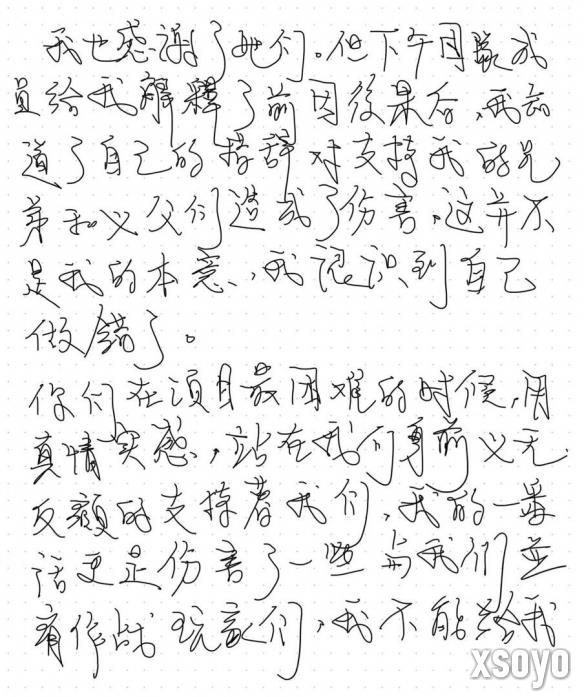 我也感谢了她们。但下午团队成
员给我解释了前因後果后，我知
道了自己的措辞对支持我的兄
弟和义父们造成了伤害，这并不
是我的本意，我认识到自己
做错了。
你们在项目最困难的时候，用
真情实感，站在我们身前义无
反顾的支持着我们，我的一番
话更是伤害了一些与我们並
肩作战玩家们，我不能给我
xsoyo